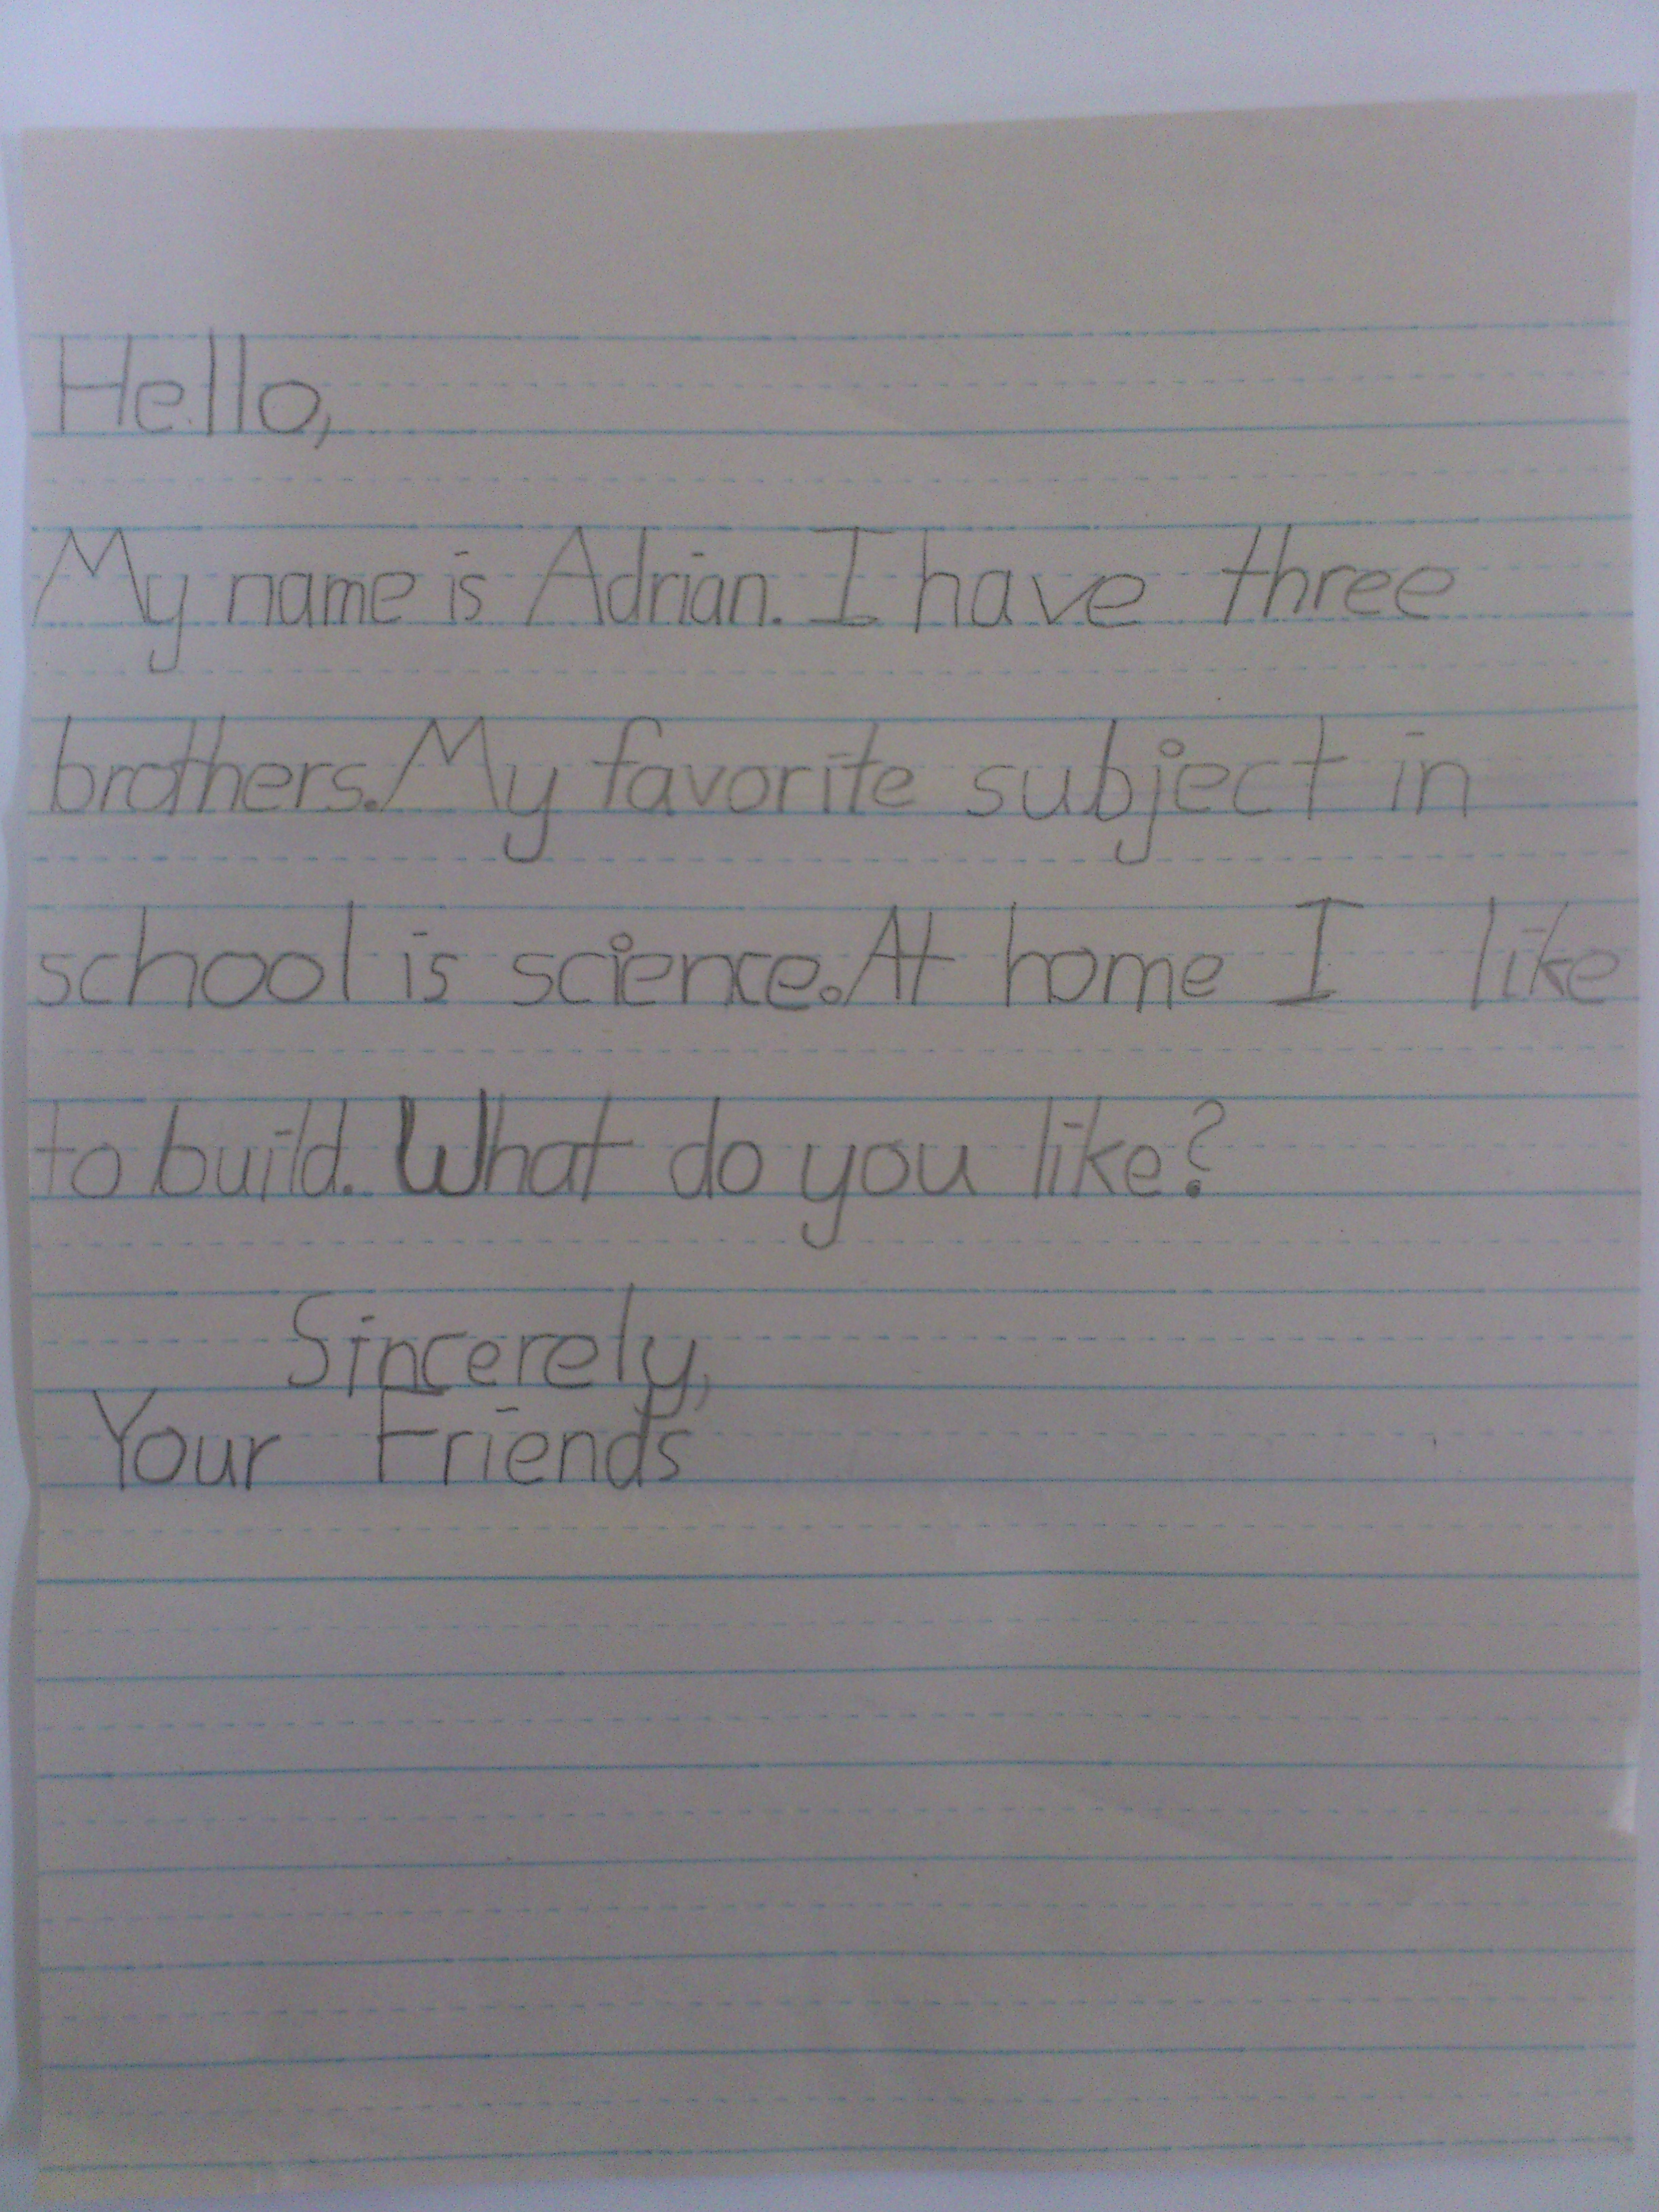 Hello,
My name is Adrian. I have three
brothers. My favorite subject in
school is science. At home I like
to build. What do you like?
Sincerely,
Your Friends